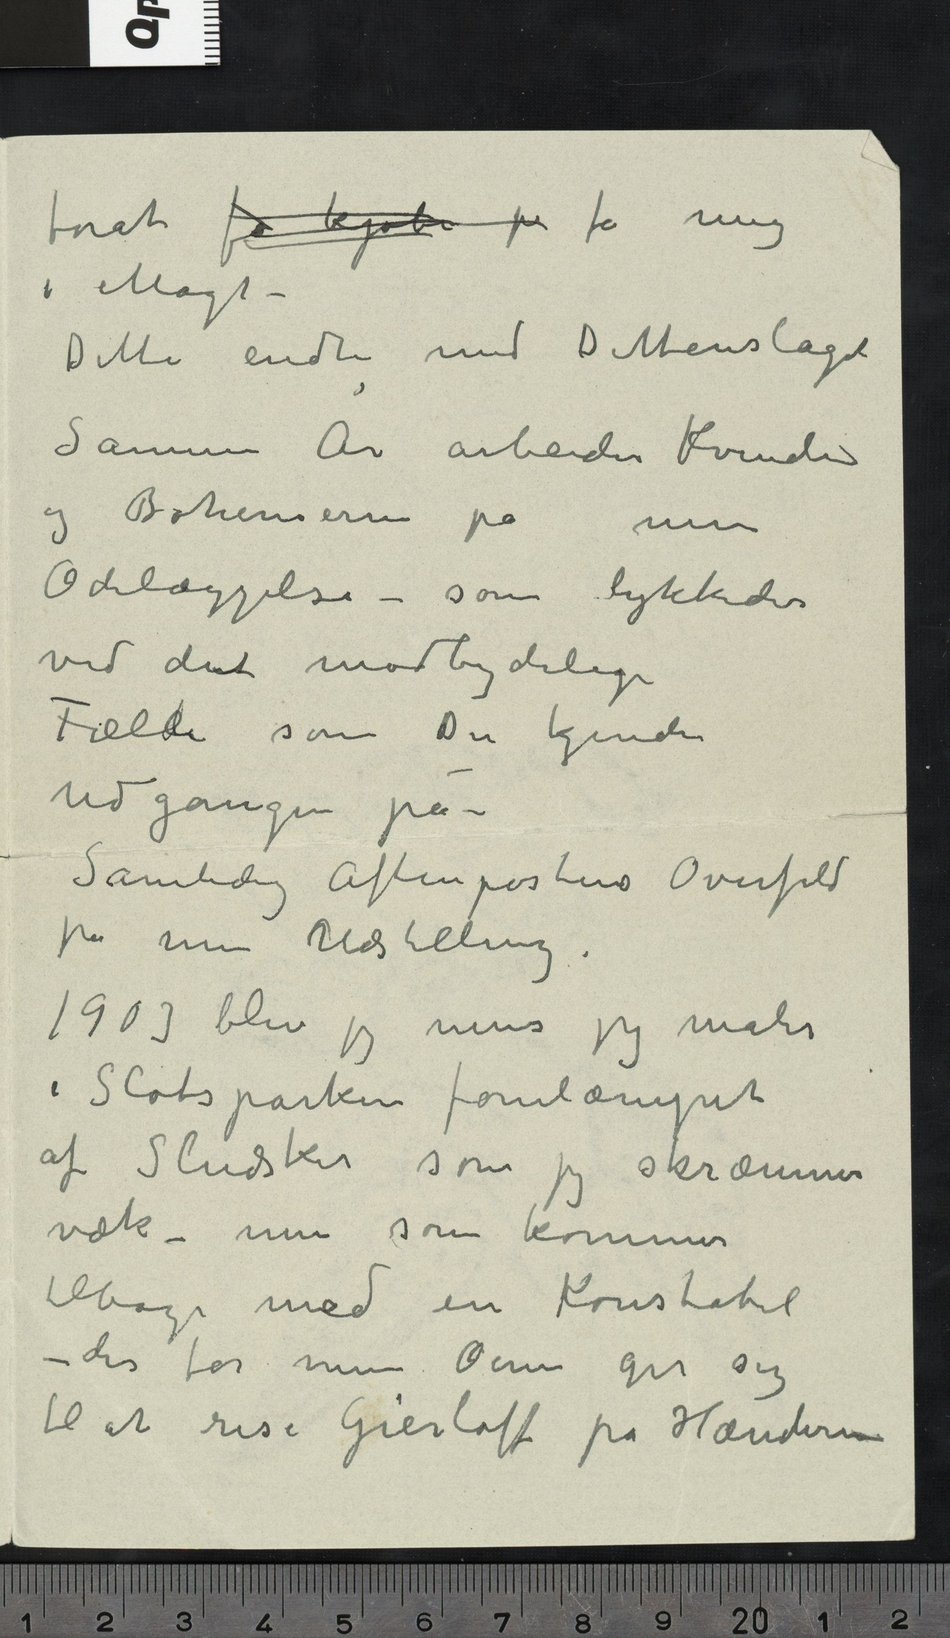 forat ~~få kjøbe på~~ få mig
i Magt –
Dette endte med Dittenslaget
Samme År arbeider Kvinden
og Bohemerne på min
Ødelæggelse – som lykkedes
ved det modbydelige
Fælde som Du kjender
udgangen på –
Samtidig Aftenpostens Overfald
på min Udstilling.
1903 blev jeg mens jeg maler
i Slotsparken fornlæmpet
af Sludsker som jeg skræmmer
væk – men som kommer
tilbage med en Konstabel
– der for mine Øine gir sig
til at rise Gierløff på Hænderne
1 2 3 4 5 6 7 8 9 20 1 2